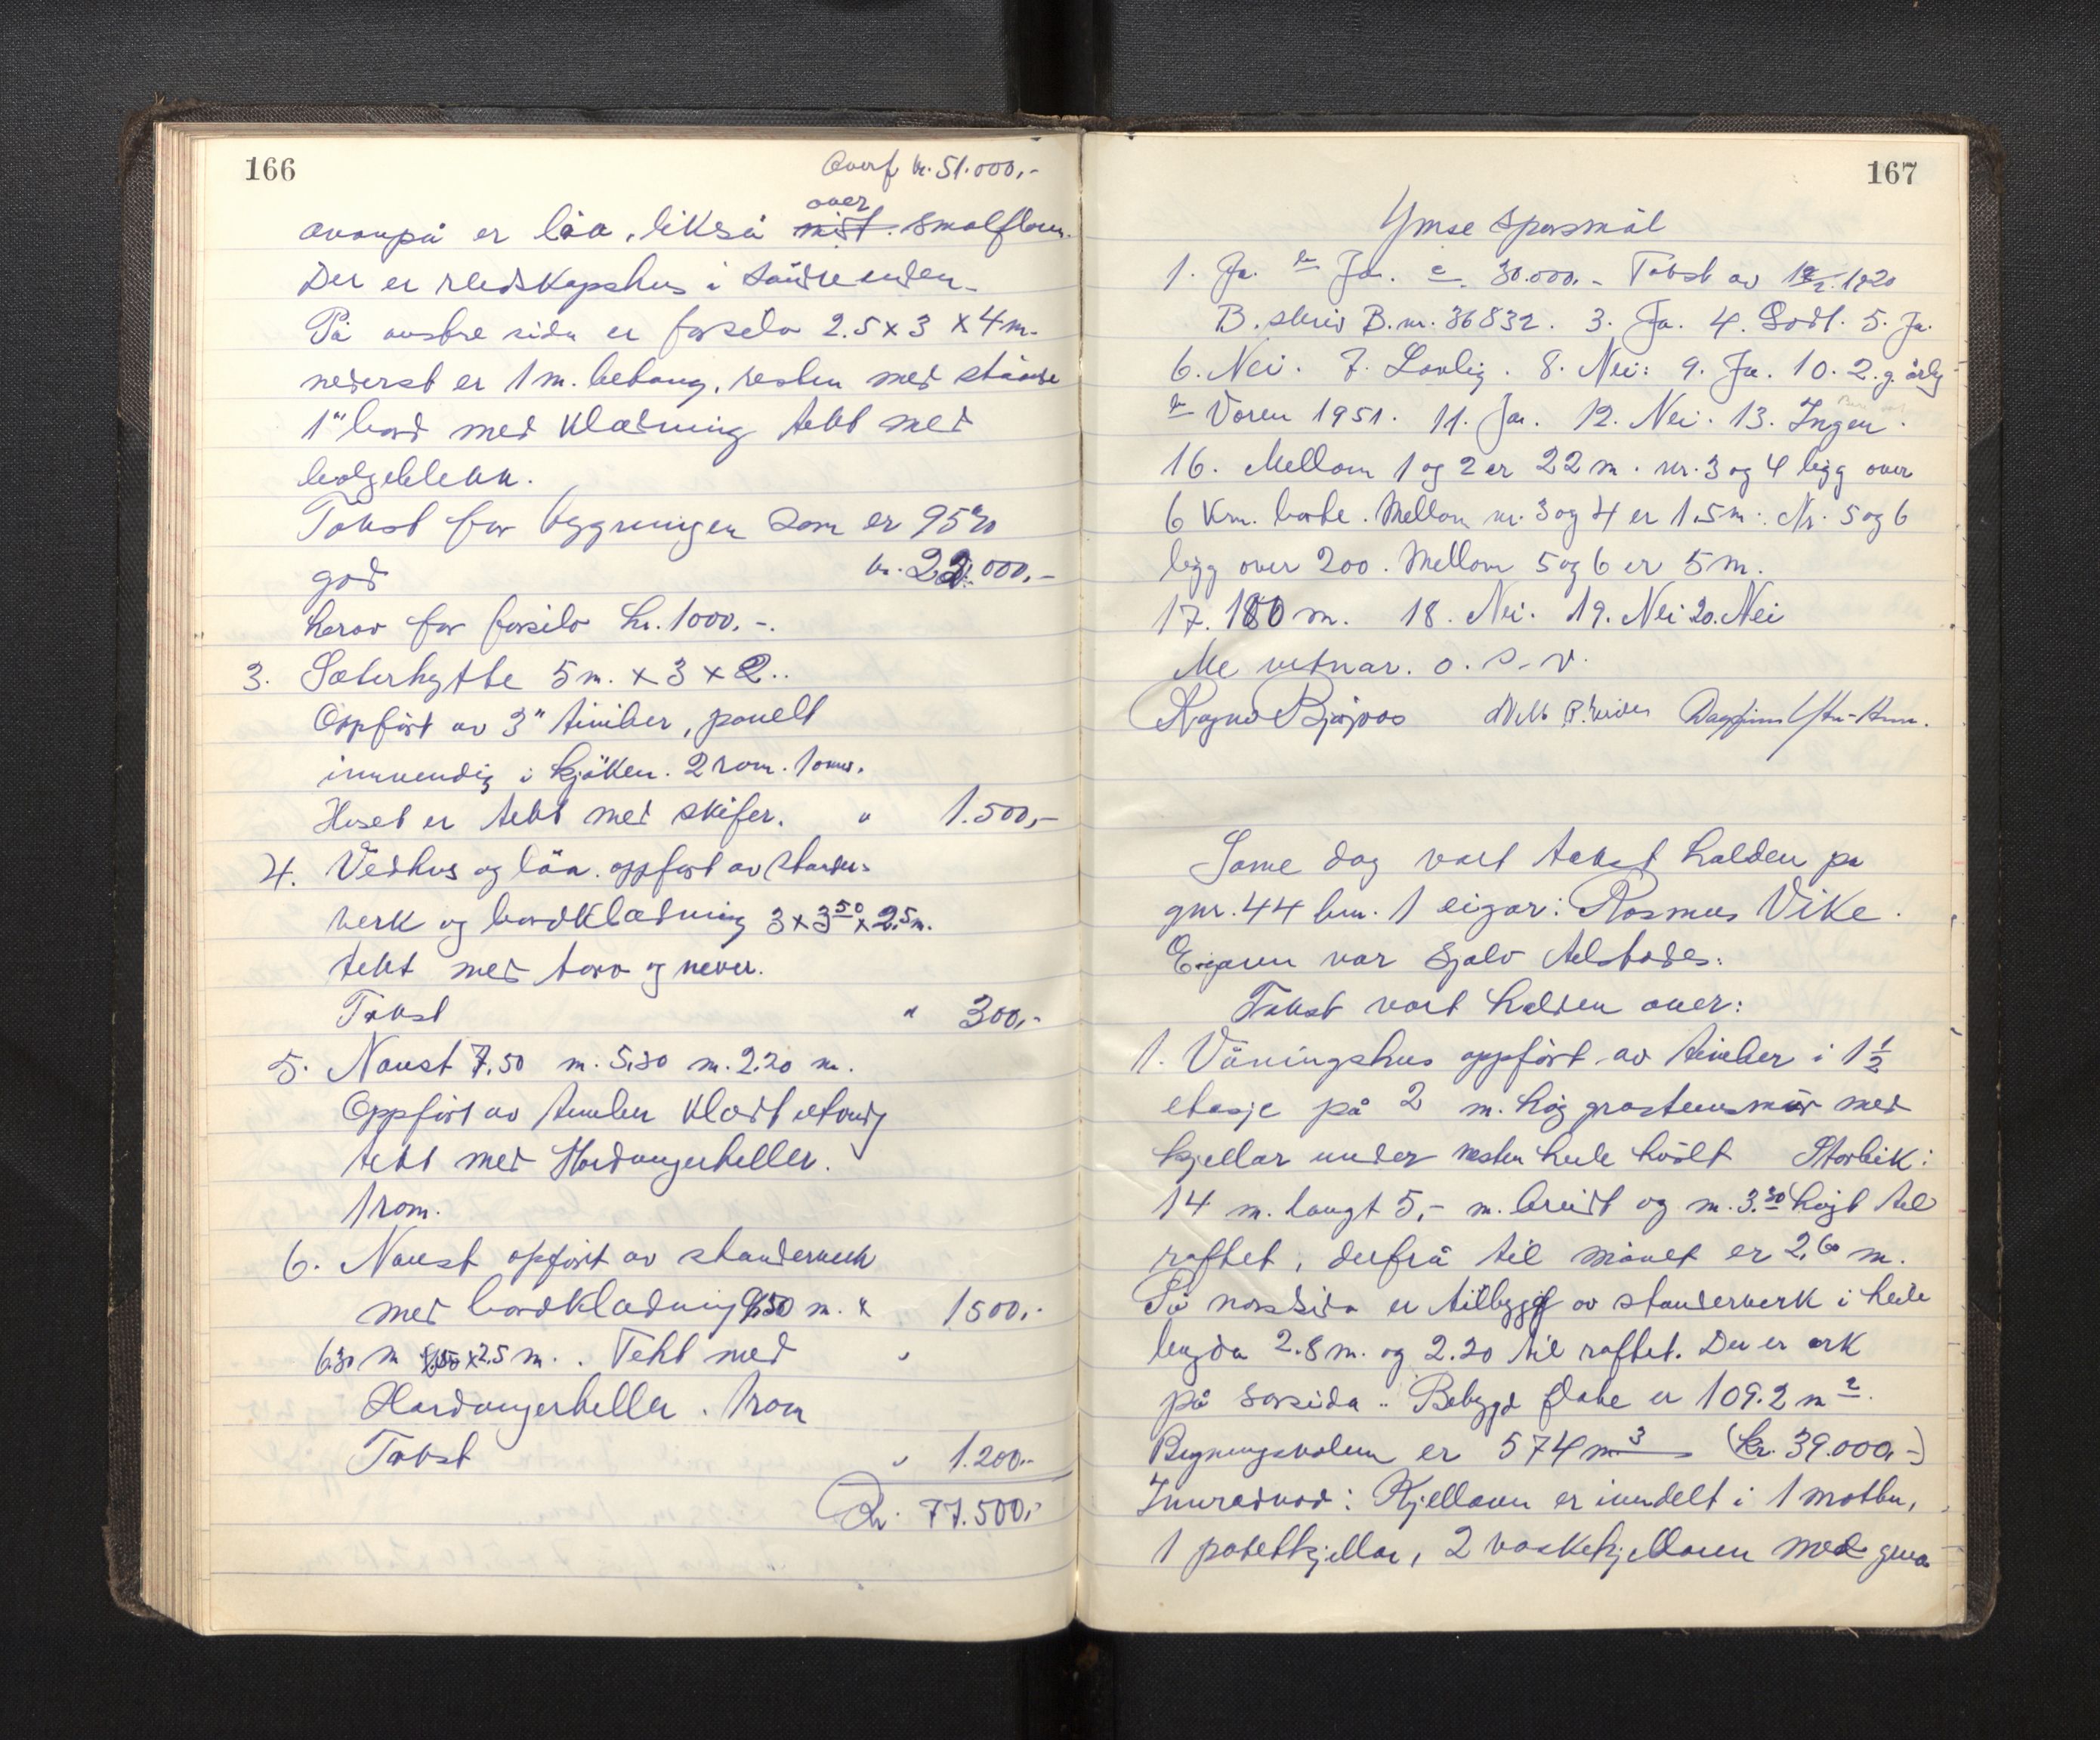 166
Overf kr. 51.000,-
over
ovanpå er löa, likså mist. smalfloren.
Der er reidskapshus i söndre enden.
På austre sida er forsilo 2.5 x 3 x 4 m.
nederst er 1 m. betong, resten med stående
1" bord med klædning tekt med
bolgeblekk.
Takst for bygningen som er 95%
god kr. 22.000,-
herav for forsilo kr. 1000.-.
3. Sæterhytte 5 m. x 3 x 2..
Oppfört av 3" timber, panelt
innvendig i kjöken. 2 rom. 1 omn.
Huset er tekt med skifer. " 1.500,-
4. Vedhus og löa. oppfört av stander-
verk og bordklædning 3 x 3 50 x 2.5 m.
tekt med torv og never.
Takst " 300,-
5. Naust 7.50 m. 5.30 m. 2.20 m.
Oppfört av timber klædt utvendig
tekt med Hardangerheller.
1 rom. 
6. Naust opfört av standerverk
med bordklædning 9.50 m. " 1500,-
6.30 m x 2.5 m. . Tekt med "
Hardangerheller. 1 rom
Takst " 1.200.-
Kr. 77.500,-
167
Ymse spørsmål
1. Ja. b Ja. c. 30.000.- Takst av 1920
B. skriv B.nr. 36832. 3. Ja. 4. Godt. 5. Ja.
6. Nei. 7. Lovlig. 8. Nei. 9. Ja. 10. 2. g. årlig
b Voren 1951. 11. Ja. 12. Nei. 13. Ingen.
16. Mellom 1 og 2 er 22 m. nr. 3 og 4 ligg over
6 km. borte. Mellom nr. 3 og 4 er 1.5 m. Nr. 5 og 6
ligg over 200. Mellom 5 og 6 er 5 m.
17. 180 m. 18. Nei. 19. Nei 20. Nei
Me vitnar. o. s. v.
Same dag vart takst halden på
gnr. 44 bnr. 1 eigar: Rasmus Vike.
Eigaren var sjølv tilstades.
Takst vart halden over:
1. Våningshus oppfört av timber i 1 1/2
etasje på 2 m. høg grasteinsmur med
kjellar under nesten heile huset Storleik:
14 m. langt 5,- m. breidt og m. 3.30 høgt til
raftet, derfrå til mønet er 2,60 m.
På norsida er tilbygg av standerverk i heile
lengda 2.8 m. og 2.20 til raftet. Der er ark
på sørsida.. Bebygd flate er 109.2 m 2.
Bygningsvolum er 574 m 3 (kr. 39.000,-)
Innreidnad: Kjellaren er inndelt i 1 matbu,
1 potetkjellar, 2 vaskekjellaren med grua